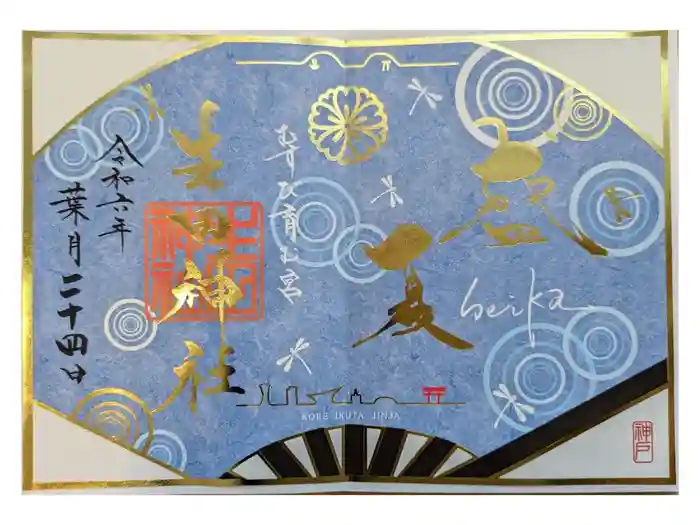 盛夏
seika
むすひ育む宮
生田神社
生田神社
令和六年
葉月二十四日
KOBE IKUTA JINJA
神戸